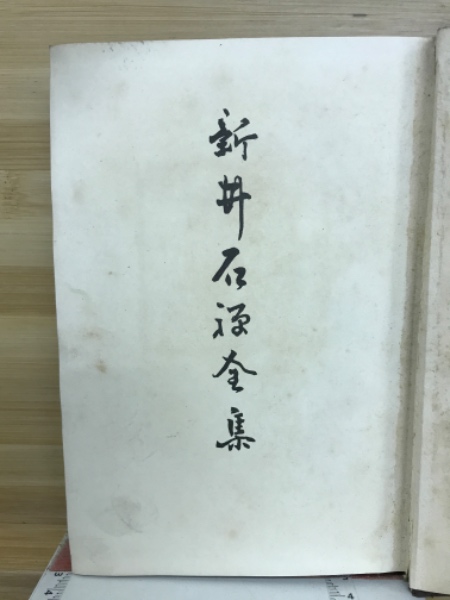 新井石禅全集